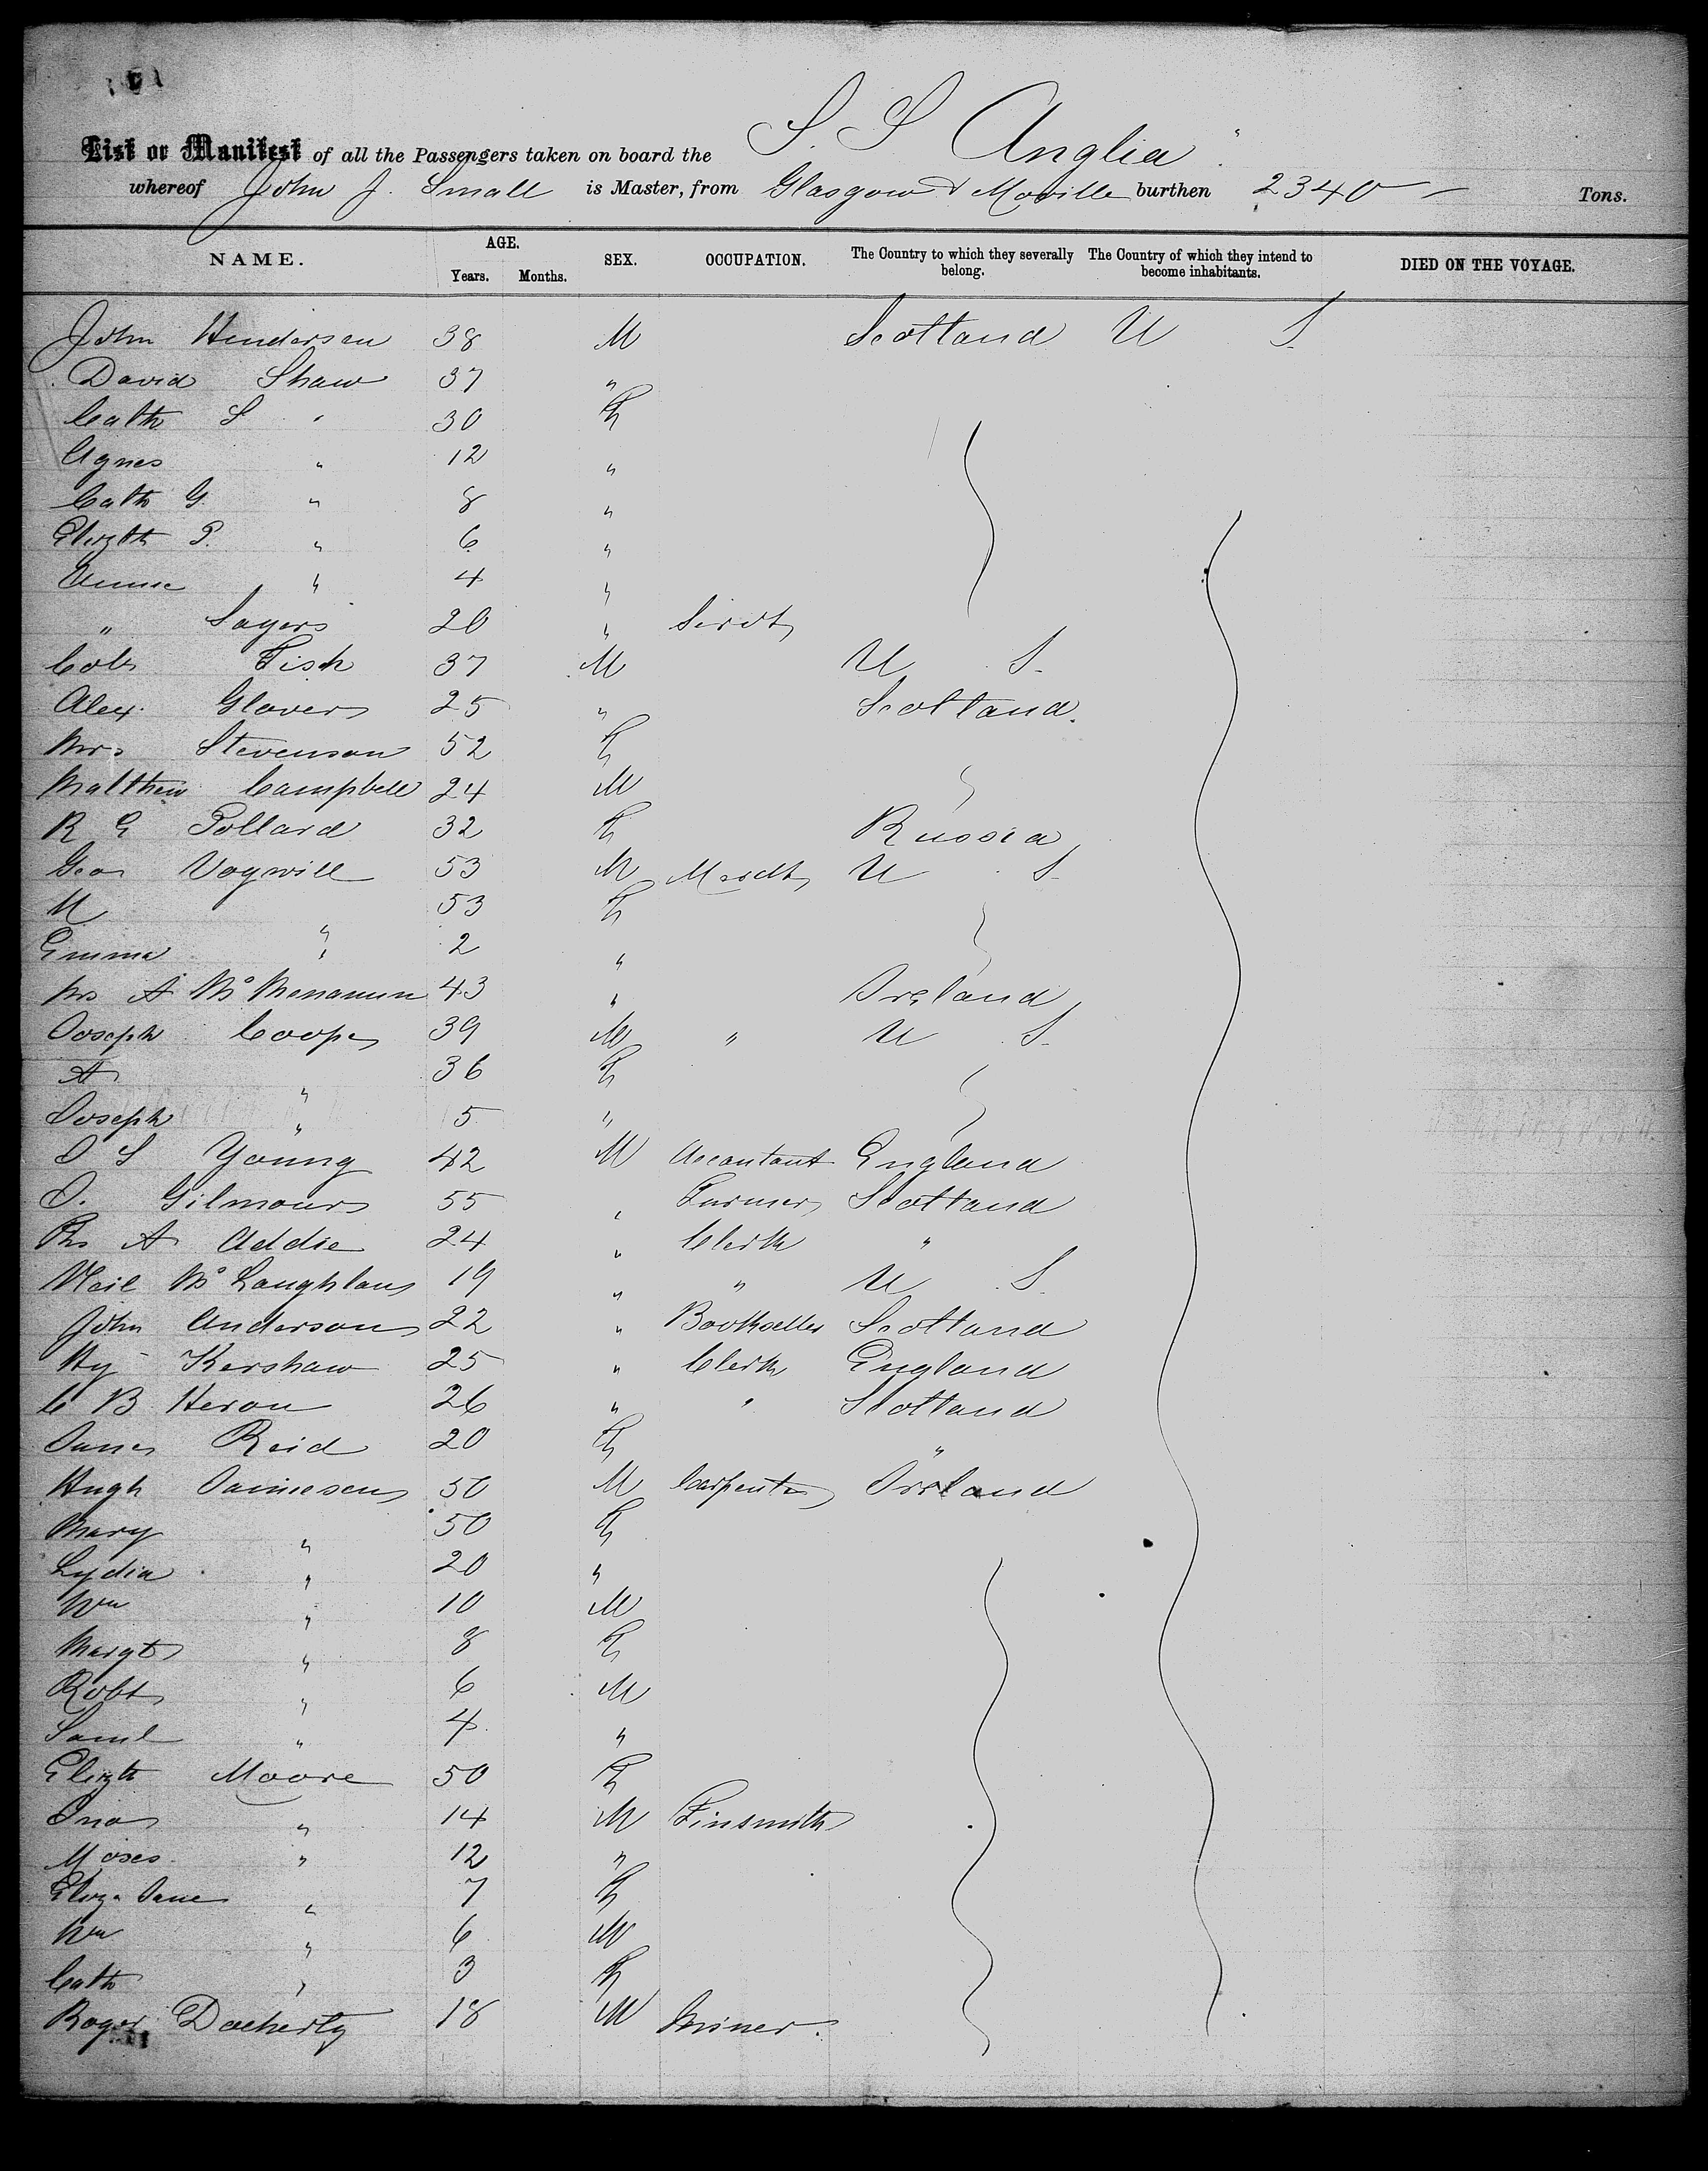 List or Manifest of all the Passengers taken on board the S. S Anglia
whereof John J. Small is Master, from Glasgow & Moville burthen 2340 — Tons.
NAME. AGE. Years. Months. SEX. OCCUPATION. The Country to which they severally belong. The Country of which they intend to become inhabitants. DIED ON THE VOYAGE.
John Henderson 38 M Scotland U S
David Shaw 37 "
Cath S " 30 F
Agnes " 12 "
Cath G. " 8 "
Elizth P. " 6 "
Annie " 4 "
" Sayers 20 " Servt
Colr Fish 37 M U S
Alex. Glover 25 " Scotland.
Mrs Stevenson 52 F
Matthew Campbell 24 M
R G Pollard 32 F Russia
Geo Vogwill 53 M Merdt U S
M " 53 F
Emma " 2 "
Mrs A McMenamin 43 " Ireland
Joseph Cooper 39 M " U S
A " 36 F
Joseph " 5 "
J S Young 42 M Accantant England
J. Gilmour 55 " Farmer Scotland
Rs A Addie 24 " Clerk "
Neil McLaughlan 19 " " U S
John Anderson 22 " Bookseller Scotland
Hy Kershaw 25 " Clerk England
C B Heron 26 " " Scotland
James Reid 20 F "
Hugh Jamieson 50 M Carpenter Ireland
Mary " 50 F
Lydia " 20 "
Wm " 10 M
Margt " 8 F
Robt " 6 M
Saml " 4 "
Elizth Moore 50 F
Jno " 14 M Tinsmith
Moses " 12 "
Eliza Jane " 7 F
Wm " 6 M
Cath " 3 F
Roger Docherty 18 M Miner.